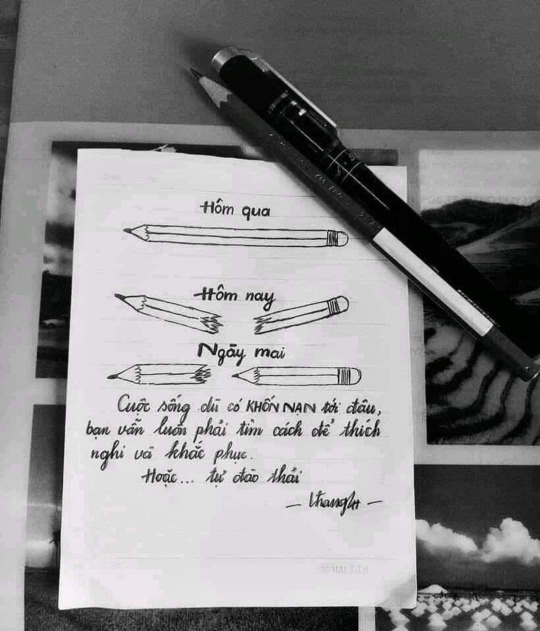 Hôm qua
Hôm nay
Ngày mai
Cuộc sống dù có KHỐN NẠN tới đâu,
bạn vẫn luôn phải tìm cách để thích
nghi và khắc phục.
Hoặc... tự đào thải